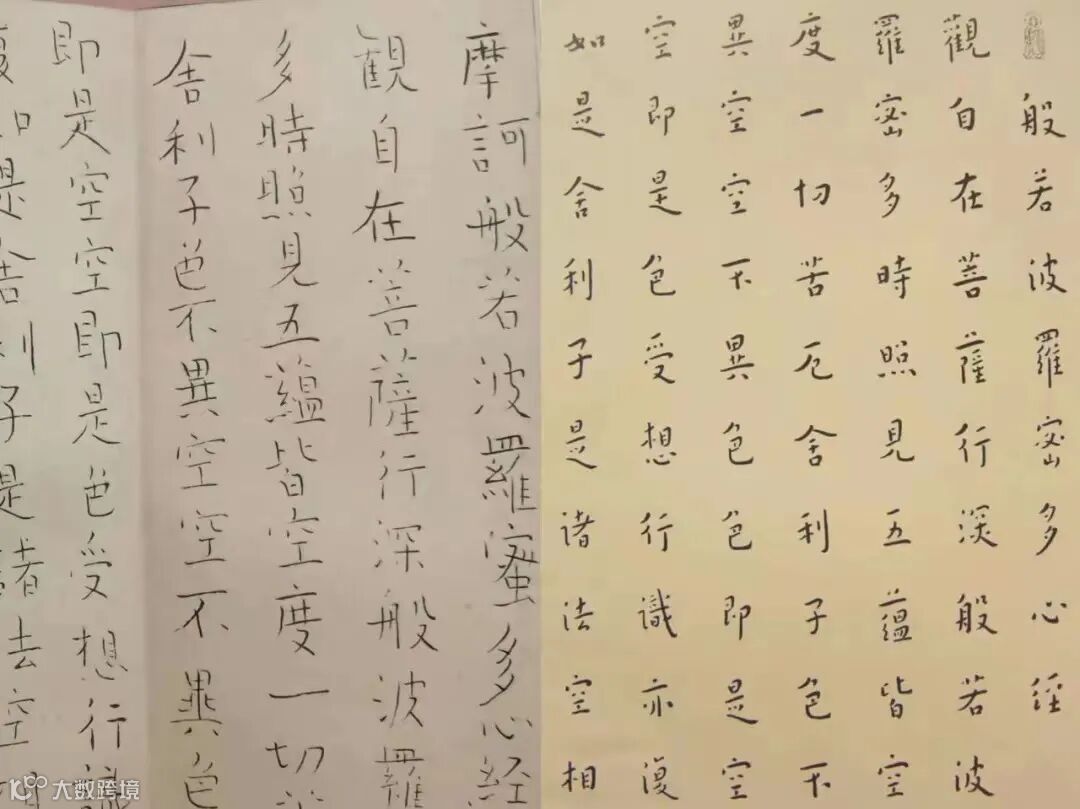 摩訶般若波羅蜜多心経
觀自在菩薩行深般波羅
多時照見五蘊皆空度一切
舍利子色不異空空不異色
即是空空即是色受想行
如是舍利子是諸法空
般若波羅密多心経
觀自在菩薩行深般若波
羅密多時照見五蘊皆空
度一切苦厄舍利子色不
異空空不異色色即是空
空即是色受想行識亦復
如是舍利子是諸法空相
大数跨境